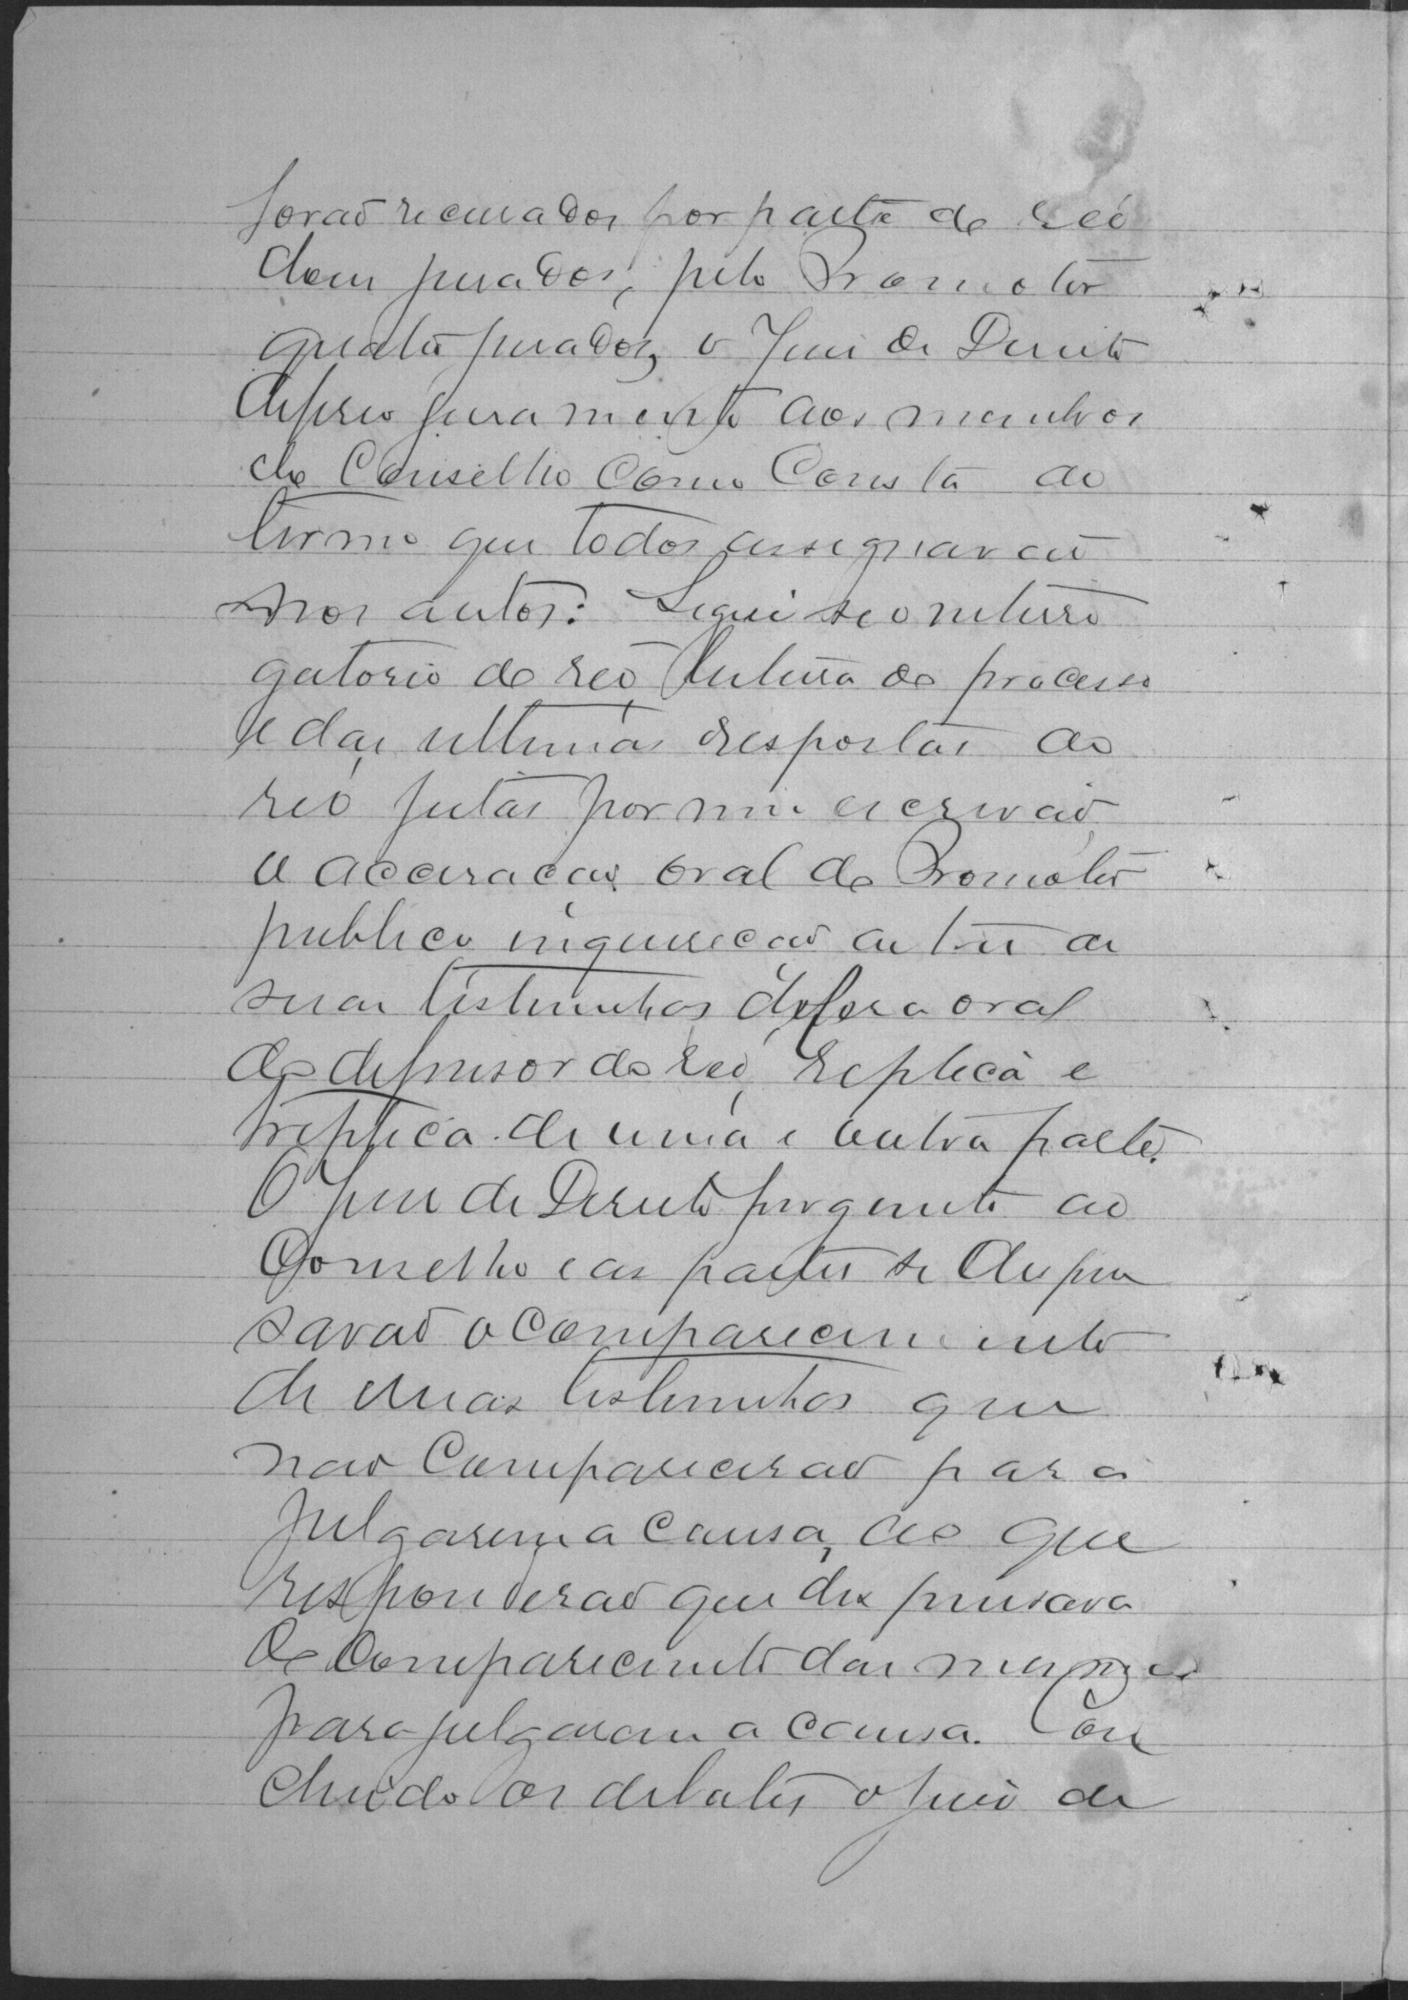 forão recusados por parte do reo
dous jurados, pelo Promotor
quatro jurados, o Juiz de Direito
deferio juramento aos membros
do Conselho como consta do
termo que todos assignarão
nos autos: Seguiseo interro
gatorio do reo, leitura do processo
e das ultimas respostas do
reo feitas por mim escrivão,
a accusação oral do Promotor
publico inquirição de
suas testemunhas defesa oral
do defensor do reo, replica e
treplica de uma e outra parte.
O Juiz de Direito pergunta ao
Conselho e as partes se dispen
savão o comparecimento
de testemunhas que
não comparecerão para
julgarem a causa, ao que
responderão que dispensava
o comparecimento das mesmas
para julgarem a causa. Con
cluido os debates o juiz de